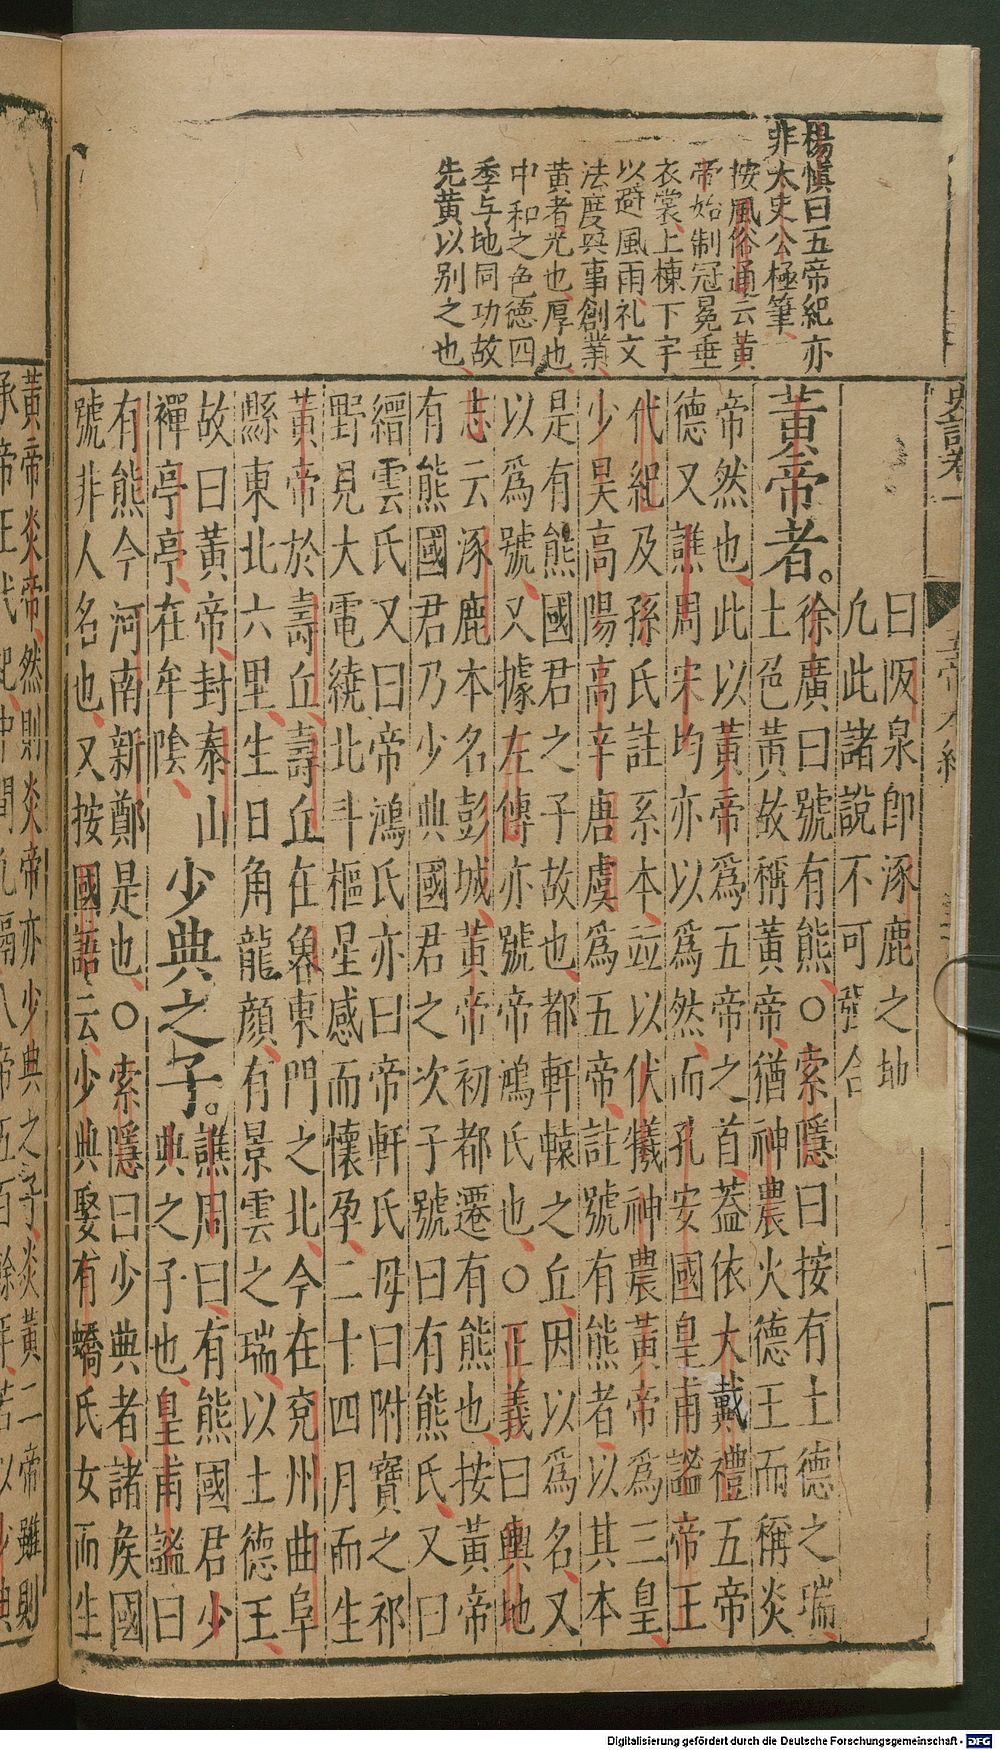 楊慎曰五帝紀亦
非太史公極筆
按風俗通云黃
帝始制冠冕垂
衣裳上棟下宇
以避風雨礼文
法度興事創業
黃者光也厚也
中和之色德四
季与地同功故
先黃以別之也
史記卷一
五帝本紀
曰阪泉卽涿鹿之地
凢此諸說不可
合
黃帝者。
徐廣曰號有熊○索隱曰按有土德之瑞
土色黃故稱黃帝猶神農火德王而稱炎
帝然也此以黃帝爲五帝之首葢依大戴禮五帝
德又譙周宋均亦以爲然而孔安國皇甫謐帝王
代紀及孫氏註系本竝以伏犧神農黃帝爲三皇
少昊高陽高辛唐虞爲五帝註號有熊者以其本
是有熊國君之子故也都軒轅之丘因以爲名又
以爲號又據左傳亦號帝鴻氏也○正義曰輿地
志云涿鹿本名彭城黃帝初都遷有熊也按黃帝
有熊國君乃少典國君之次子號曰有熊氏又曰
縉雲氏又曰帝鴻氏亦曰帝軒氏母曰附寶之祁
野見大電繞北斗樞星感而懷孕二十四月而生
黃帝於壽丘壽丘在魯東門之北今在兗州曲阜
縣東北六里生日角龍顏有景雲之瑞以土德王
故曰黃帝封泰山
禪亭亭在牟陰
少典之子。
譙周曰有熊國君少
典之子也皇甫謐曰
有熊今河南新鄭是也○索隱曰少典者諸矦國
號非人名也又按國語云少典娶有蟜氏女而生
黃帝炎帝然則炎帝亦少典之子炎黃二帝雖則
承帝王代紀中間凢隔八帝五百餘年若以少典
Digitalisierung gefördert durch die Deutsche Forschungsgemeinschaft - DFG